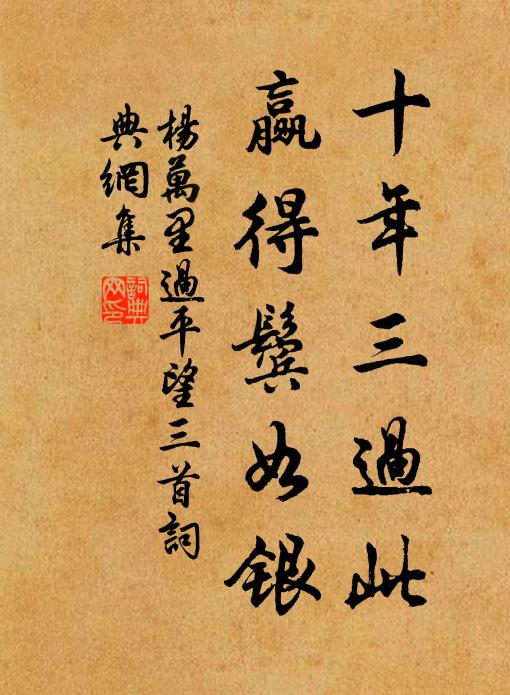 十年三過此
贏得鬢如銀
楊萬里過平望三首詞
典網集
詞典網印